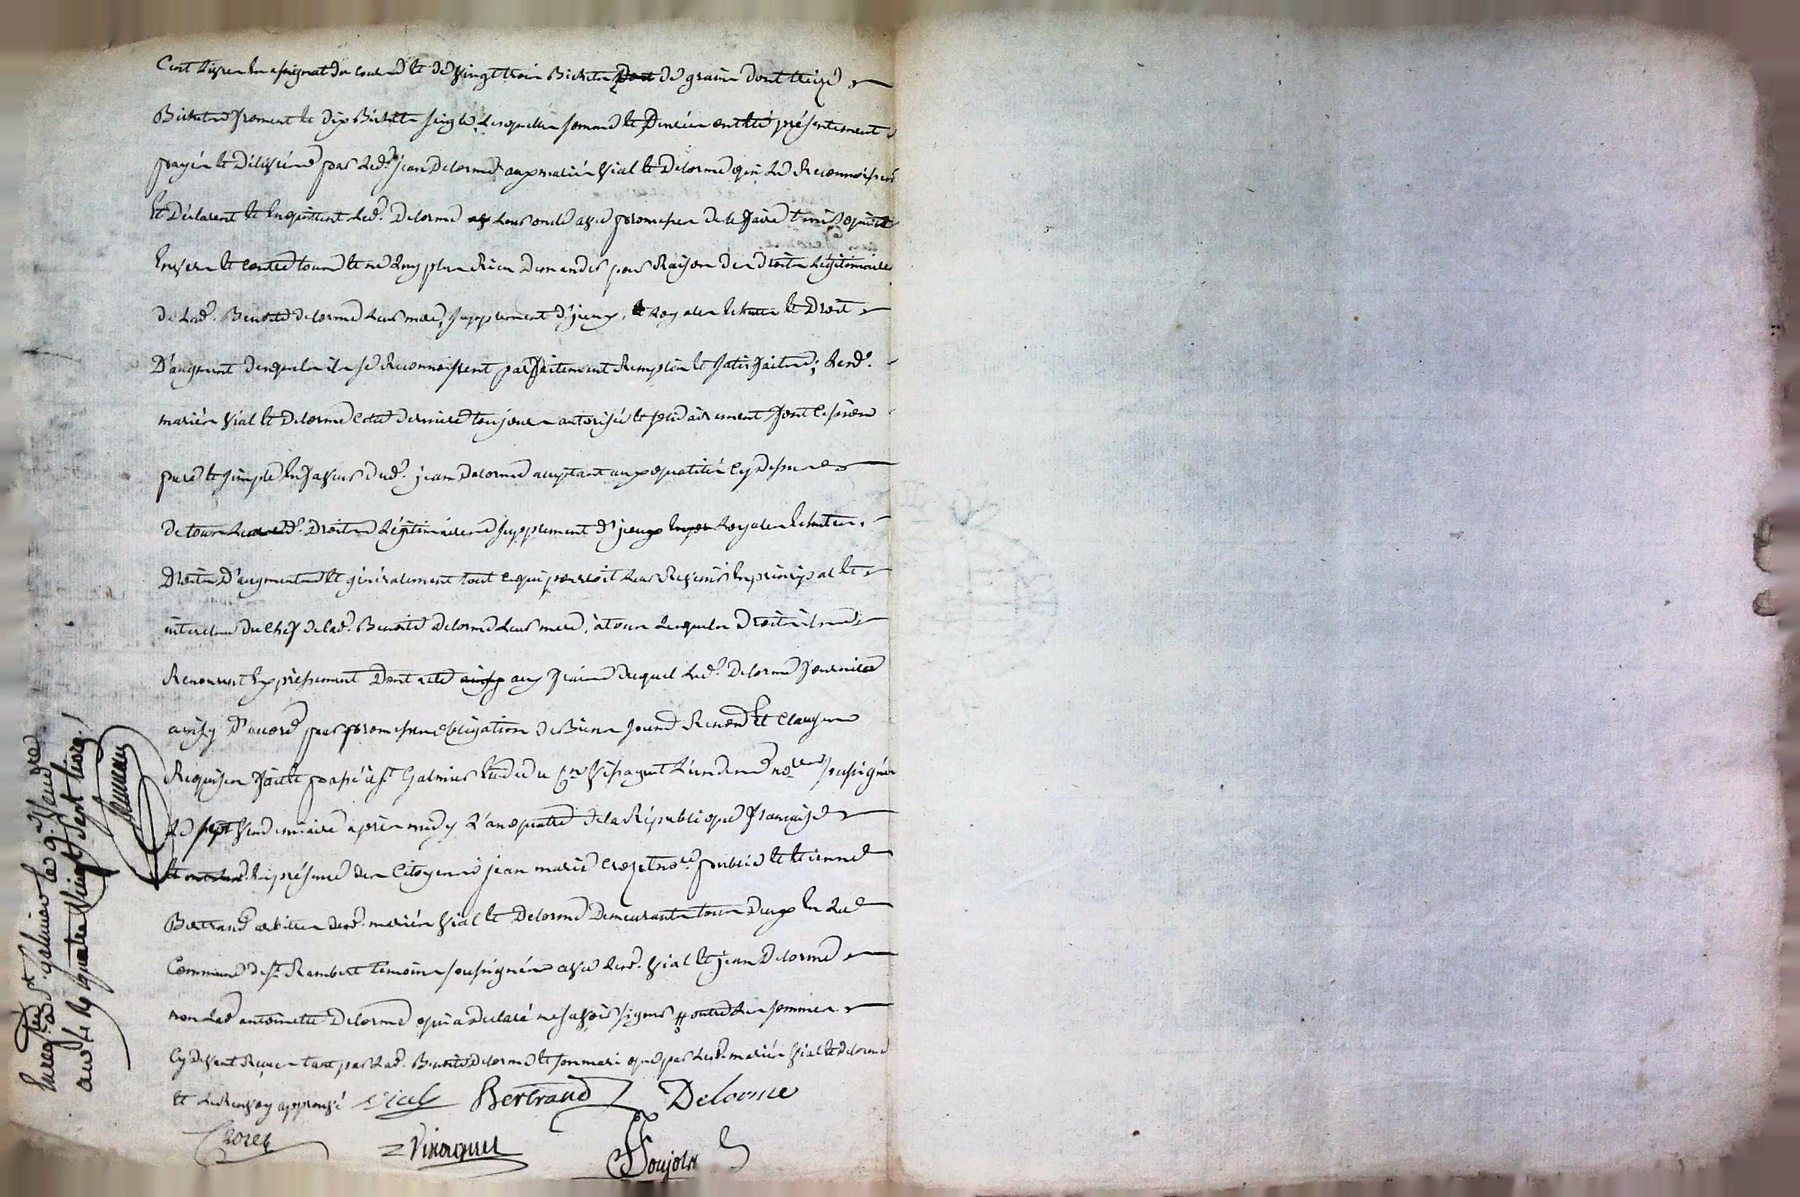 Cent livres en assignat de cours et de vingt trois Bichets de grain dont treize
Bichets froment et dix Bichets seigle, lesquelles somme et denrées ont été présentement
payés et délivrés par led. jean Delorme aux mariés Vial et Delorme qui le Reconnoissent
et Déclarent et En quittent led. Delorme leur oncle avec promesses de le faire tenir quitte
Envers et contre tous et ne luy plus Rien Demander pour Raison des droits légitimaires
de lad. Benoite delorme leur mere, supplement d'iceux, Loyales Echutes et Droit
D'augment desquels ils se Reconnoissent parfaitement Remplis et satisfaits; lesd.
mariés Vial et Delorme cette derniere toujours autorisée et solidairement font cession
pure et simple En faveur dud. jean Delorme acceptant aux qualités cy dessus
de tous Droits Légitimaires supplement d'iceux Loyales Echutes,
Droits D'augment et généralement tout ce qui pourroit leur Revenir En principal et
interets du Chef de lad. Benoite delorme leur mere, à tous lesquels Droits ils
Renoncent Expressement Dont acte aux fraix duquel led. Delorme fournira
ainsy D'accord par promesses obligation de Biens soumis Renon. et Clauses
Requises fait et passé à St Galmier Etude du Cen Viraguet l'un des nores soussignés
Le sept Vendemiaire après midy L'an quatre de la République française
En présence des Citoyens jean marie Crozet nore public et Etienne
Bertrand arbitres desd. mariés Vial et Delorme Demeurants tous deux En lad.
Commune de St Rambert temoins soussignés avec lesd. Vial et jean Delorme
non lad. antoinette Delorme qui a Declaré ne savoir signer # outre les sommes
Cy devant Reçues tant par lad. Benoite delorme et son mari que par lesd. mariés Vial et delorme
et le Renvoy approuvé Vial Bertrand Delorme
Crozet Viraguet Soujols
Enregtré à St galmier le 9 Vendre
an 4